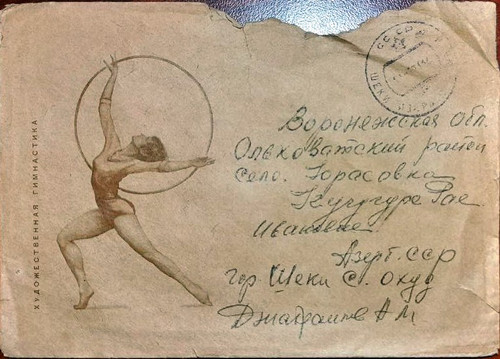 ХУДОЖЕСТВЕННАЯ ГИМНАСТИКА
СССР
Воронежская обл.
Ольховатский район
село. Юрасовка
Рае
Ивановне
Азерб. ССР
гор Шеки с. Охуд
А М